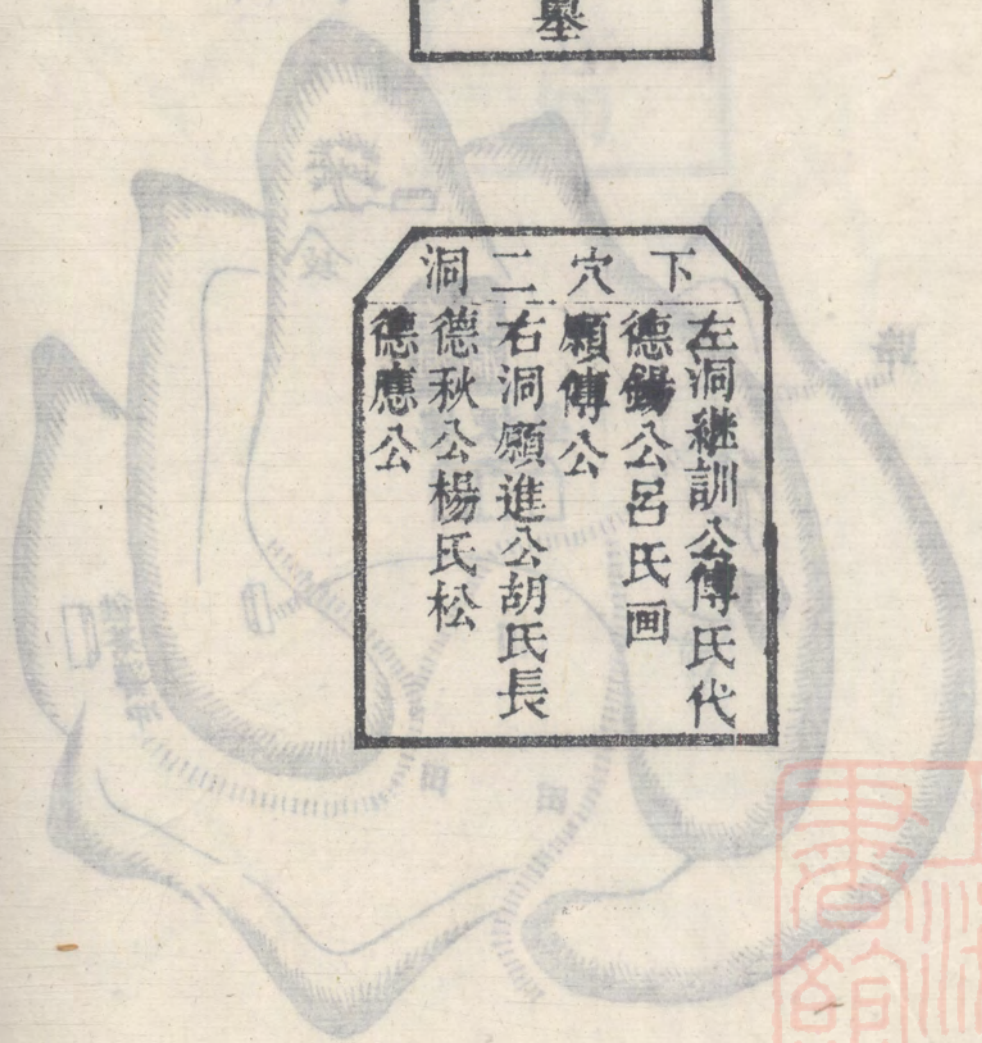 墓
下穴二洞
左洞継訓公傅氏代
德錫公呂氏画
願傅公
右洞願進公胡氏長
德秋公楊氏松
德應公